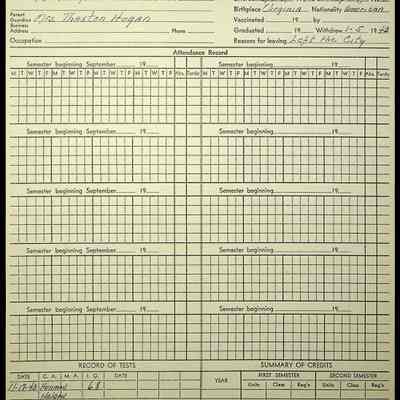 Parent
Guardian Mrs Theston Hogan
Business
Address Phone
Occupation
Birthplace Virginia Nationality American
Vaccinated 19 by
Graduated 19 Withdrew 1-5 1942
Reasons for leaving Left the City
Attendance Record
Semester beginning September 19 Semester beginning 19
M T W T F M T W T F M T W T F M T W T F Abs. Tardy M T W T F M T W T F M T W T F M T W T F Abs. Tardy
Semester beginning September 19 Semester beginning 19
Semester beginning September 19 Semester beginning 19
Semester beginning September 19 Semester beginning 19
Semester beginning September 19 Semester beginning 19
RECORD OF TESTS SUMMARY OF CREDITS
DATE C.A. M.A. I.Q. DATE YEAR FIRST SEMESTER SECOND SEMESTER
Units Class Req's Units Class Req's
68